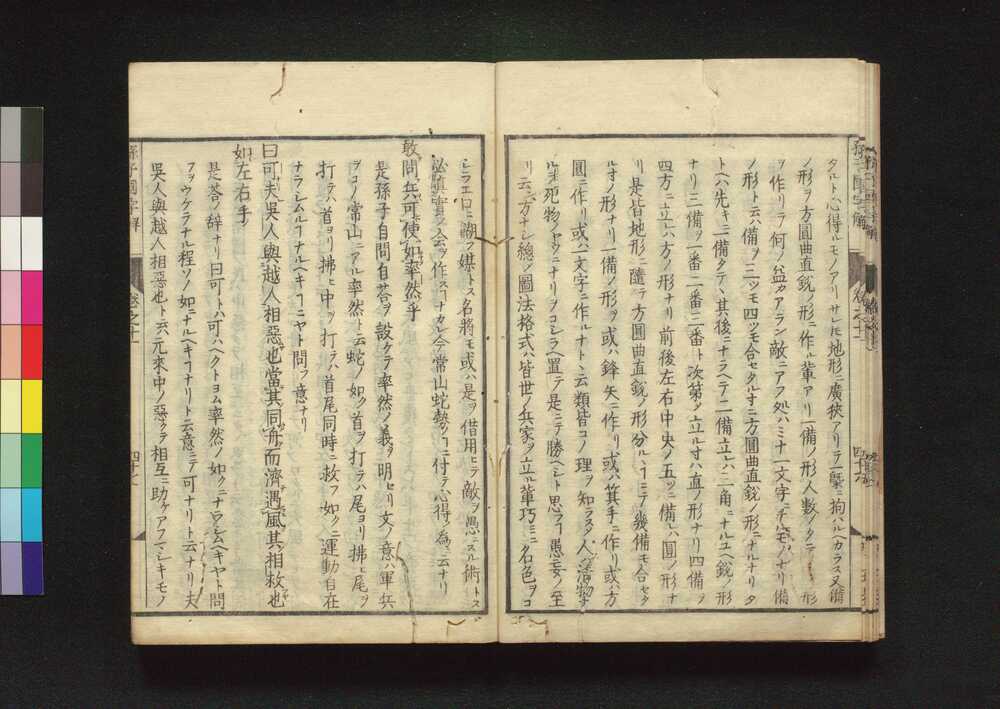 タルト心得ルモノアリサレモ地形ニ廣狭アリテ一槩ニ拘ハルヘカラス又備
ノ形ヲ方圓曲直鋭ノ形ニ作ル軰アリ一備ノ形人数ノタテ
ヲ作リテ何ノ益カアラン敵ニアフ処ハミナ一文字ニ
ノ形ト云ハ備ヲ三ツモ四ツモ合セタルナニ方圓曲直鋭ノ形ニナルナリ
トハ先キニ一備タテヽ其後ニナラヘテ二備立レハ三角ニナルユヘ鋭ノ形
ナリ三備ヲ一番二番三番ト次第ヲ立ルナハ直ノ形ナリ四備ヲ
四方ニ立レハ方ノ形ナリ前後左右中央ノ五ツニ備レハ圓ノ形ナ
リ是皆地形ニ隨テ方圓曲直鋭ノ形分ルヽヿニテ幾備モ合セタ
ルナノ形ナリ一備ノ形ヲ或ハ鋒矢ニ作リ或ハ箕手ニ作リ或ハ方
圓ニ作リ或ハ一文字ニ作ルナト云類皆コノ理ヲ知ラスメ人ハ活物ナ
ルヲ死物ノヤウニナリヲコシラヘ置テ是ニテ勝ヘシト思フヿ愚妄ノ至
リ云ン方ナシ總メ圖法格式ハ皆世ノ兵家ヲ立ル軰巧ミニ名色ヲコ
シラエ口ニ湖ヲ媒トス名將モ或ハ是ヲ借用ヒテ敵ヲ愚ニスル術トス
必眞實ノ会ヲ作スヿナカレ今常山蛇勢ノヿニ付テ心得ノ為ニ云ナリ
敢問兵可使如率然乎
是孫子自問自荅ヲ設ケテ率然ノ義ヲ明セリ文ノ意ハ軍兵
ヲコノ常山ニアル率然ト云蛇ノ如ク首ヲ打テハ尾ヨリ拂ヒ尾ヲ
打テハ首ヨリ拂ヒ中ヲ打テハ首尾同時ニ救フ如クニ運動自在
ナラシムルヿナルヘキヿニヤト問フ意ナリ
曰可夫吳人與越人相惡也當其同舟而濟遇風其相救也
如左右手
是荅ノ辞ナリ曰可トハ可ハヘクトヨム率然ノ如クニナラシムヘキヤト問
フヲウケテナル程ソノ如ニナルヘキヿナリト云意ニテ可ナリト云ナリ夫
吳人與越人相惡也ト云ハ元來中ノ惡クテ相互ニ助ケアフマシキモノ
四十七